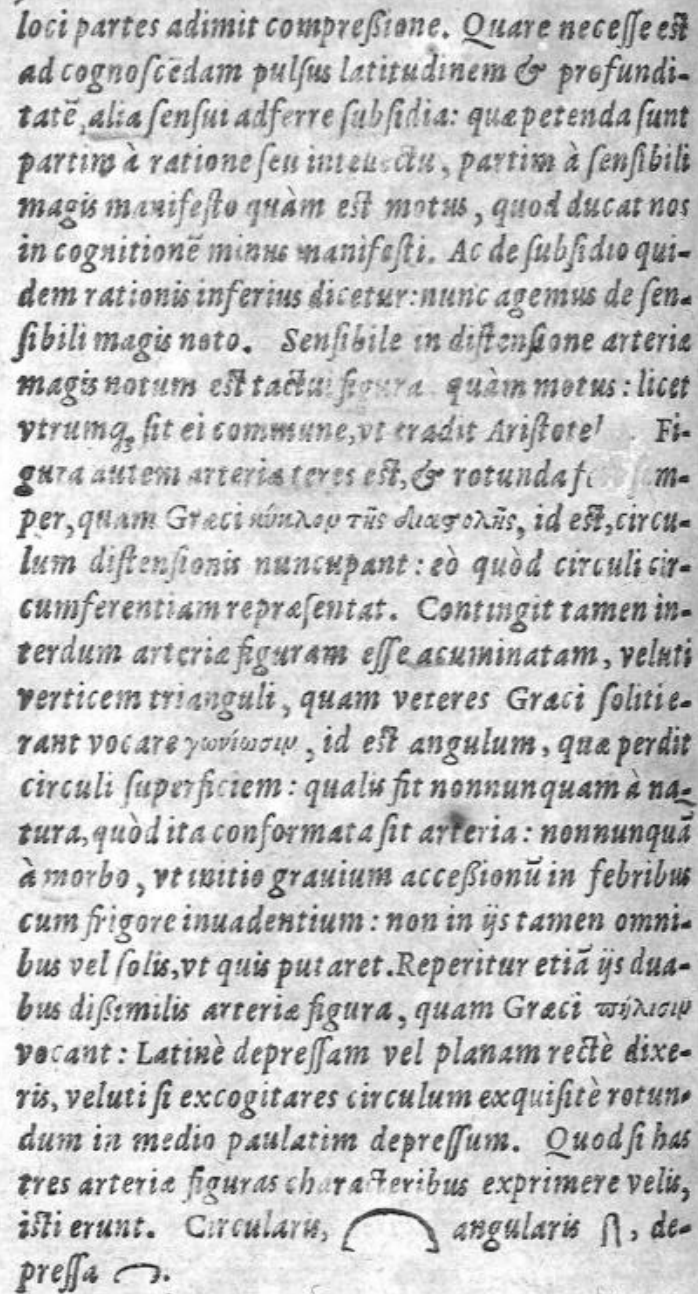 loci partes adimit compreßione. Quare neceſſe eſt
ad cognoſcēdam pulſus latitudinem & profundi-
tatē, alia ſenſui adferre ſubſidia: quæ petenda ſunt
partim à ratione ſeu intellectu, partim à ſenſibili
magis manifeſto quàm eſt motus, quod ducat nos
in cognitionē minus manifeſti. Ac de ſubſidio qui-
dem rationis inferius dicetur: nunc agemus de ſen-
ſibili magis noto. Senſibile in diſtenſione arteriæ
magis notum eſt tactui figura quàm motus: licet
vtrumq; ſit ei commune, vt tradit Ariſtote Fi-
gura autem arteriæ teres eſt, & rotunda m-
per, quam Græci κύκλον τῆς διαστολῆς, id eſt, circu-
lum diſtenſionis nuncupant: eò quòd circuli cir-
cumferentiam repræſentat. Contingit tamen in-
terdum arteriæ figuram eſſe acuminatam, veluti
verticem trianguli, quam veteres Græci ſoliti e-
rant vocare γωνίωσιν, id eſt angulum, quæ perdit
circuli ſuperficiem: qualis fit nonnunquam à na-
tura, quòd ita conformata ſit arteria: nonnunquā
à morbo, vt initio grauium acceßionū in febribus
cum frigore inuadentium: non in ijs tamen omni-
bus vel ſolis, vt quis putaret. Reperitur etiā ijs dua-
bus dißimilis arteriæ figura, quam Græci πήλισιν
vocant: Latinè depreſſam vel planam rectè dixe-
ris, veluti ſi excogitares circulum exquiſitè rotun-
dum in medio paulatim depreſſum. Quod ſi has
tres arteriæ figuras characteribus exprimere velis,
iſti erunt. Circularis, angularis, de-
preſſa.